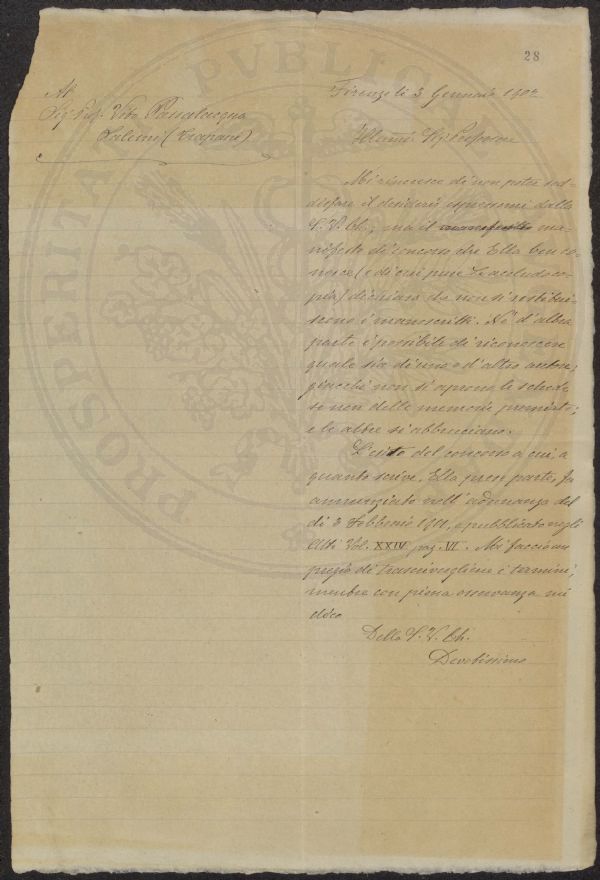 28
Firenze li 3 Gennaio 1902
Al
Sig. Prof. Vito Passalacqua
Salemi (Trapani)
Illmo. Sig. Professore
Mi rincresce di non poter sod-
disfare il desiderio espressomi dalla
S. V. Ch.; ma il manifesto ma-
nifesto di concorso che Ella ben co-
nosce (e di cui pure Le accludo co-
pia) dichiara che non si restitui-
scono i manoscritti. Nè d'altra
parte è possibile di riconoscere
quale sia di uno o d'altro autore,
giacchè non si aprono le schede
se non delle memorie premiate;
e le altre si abbruciano.
L'esito del concorso a cui, a
quanto scrive, Ella prese parte, fu
annunziato nell'adunanza del
dì 5 Febbraio 1911, e pubblicato negli
Atti Vol. XXIV pag. VI. Mi faccio un
pregio di trascrivergliene i termini;
mentre con piena osservanza mi
dico
Della S. V. Ch.
Devotissimo
PVBLICA
PROSPERITÀ